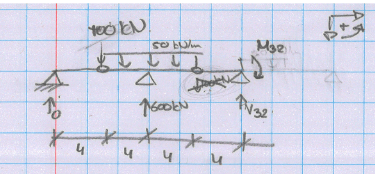 100kN
50 kN/m
M32
+
0
600kN
V32
4 4 4 4